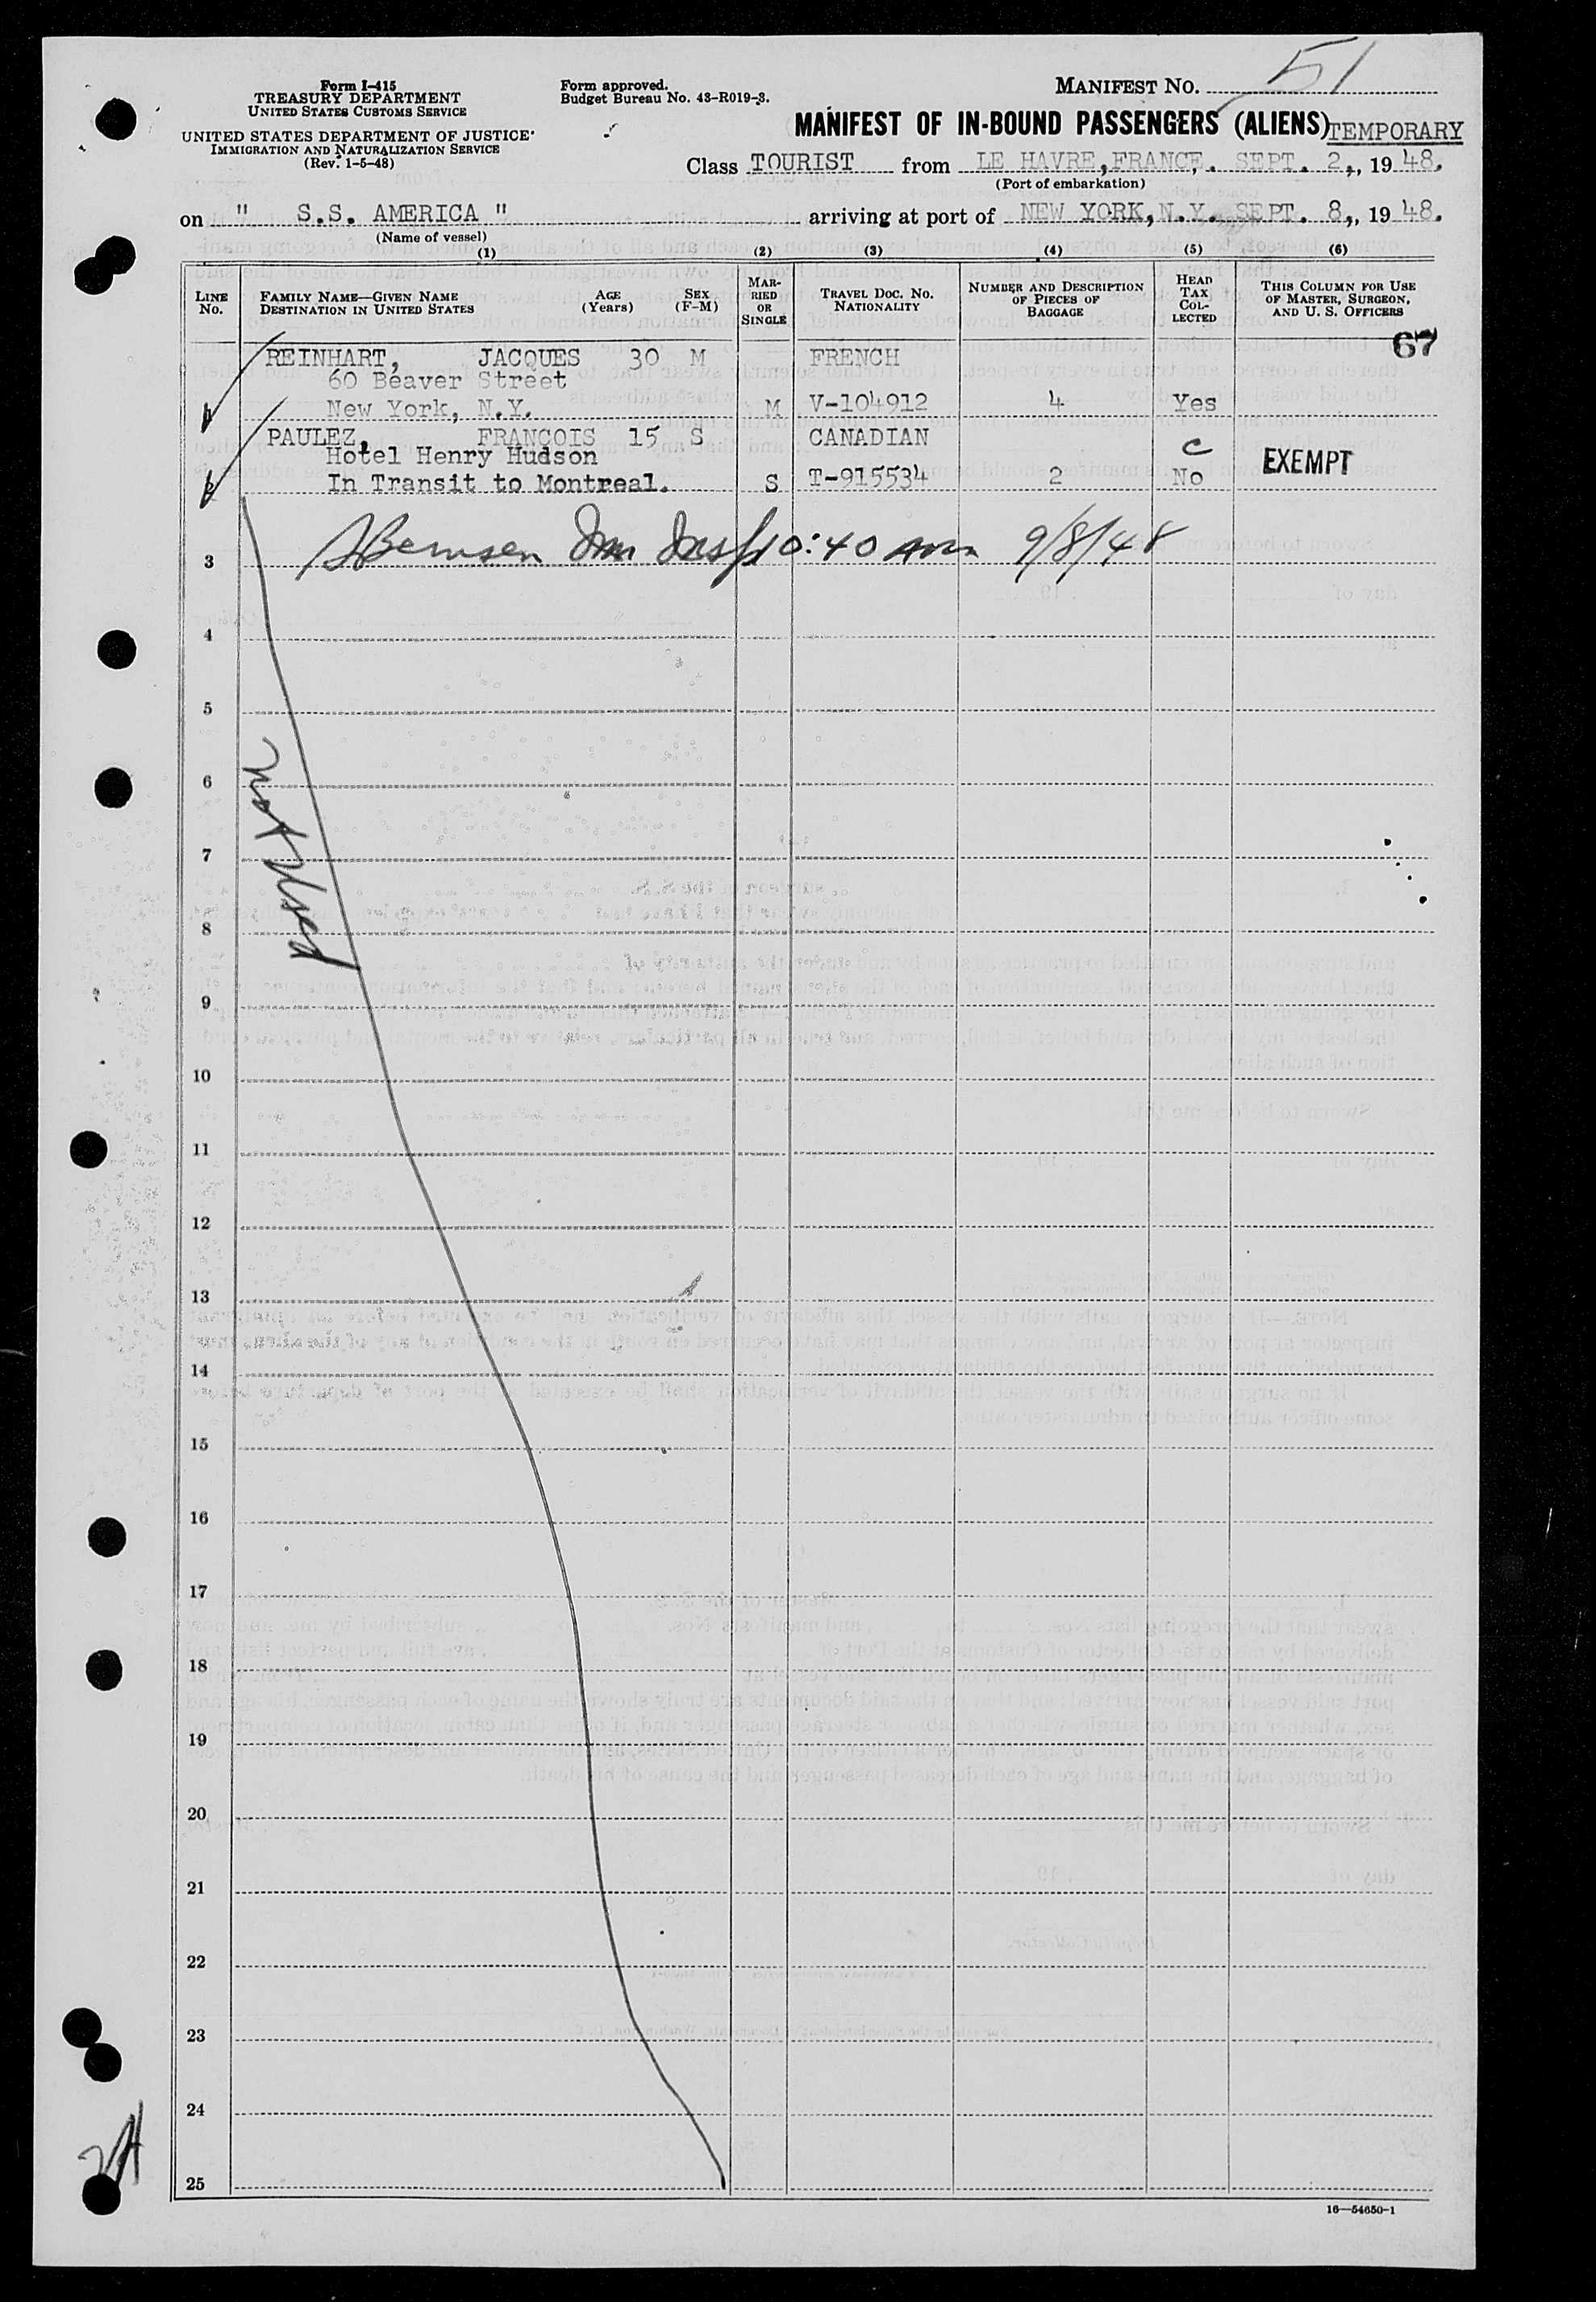 Form I-415
TREASURY DEPARTMENT
UNITED STATES CUSTOMS SERVICE
UNITED STATES DEPARTMENT OF JUSTICE
IMMIGRATION AND NATURALIZATION SERVICE
(Rev. 1-5-48)
Form approved.
Budget Bureau No. 43-R019-3.
MANIFEST NO. 51
MANIFEST OF IN-BOUND PASSENGERS (ALIENS) TEMPORARY
Class TOURIST from LE HAVRE, FRANCE, SEPT. 2, 1948.
(Port of embarkation)
on " S.S. AMERICA " arriving at port of NEW YORK, N.Y. SEPT. 8, 1948.
(Name of vessel)
(1) (2) (3) (4) (5) (6)
LINE No.
FAMILY NAME—GIVEN NAME
DESTINATION IN UNITED STATES
AGE (Years)
SEX (F-M)
MARRIED OR SINGLE
TRAVEL DOC. NO. NATIONALITY
NUMBER AND DESCRIPTION OF PIECES OF BAGGAGE
HEAD TAX COLLECTED
THIS COLUMN FOR USE OF MASTER, SURGEON, AND U. S. OFFICERS
67
REINHART, JACQUES 30 M FRENCH
60 Beaver Street
New York, N.Y. M V-104912 4 Yes
PAULEZ, FRANCOIS 15 S CANADIAN C
Hotel Henry Hudson EXEMPT
In Transit to Montreal. S T-915534 2 No
3 Imm Insp 10:40 AM 9/8/48
4
5
6
not Used
7
8
9
10
11
12
13
14
15
16
17
18
19
20
21
22
23
24
25
16—54650-1